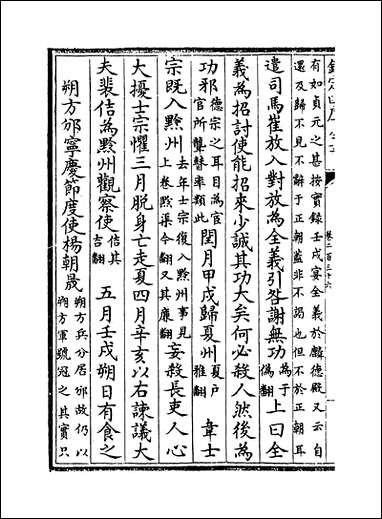 卷二百三十六
有如貞元之甚按實錄壬戌宴全義於麟德殿又云自
還及歸不見不辭于正朝蓋非不謁也但不於正朝耳
遣司馬崔放入對放為全義引咎謝無功為于偽翻上曰全
義為招討使能招來少誠其功大矣何必殺人然後為
功邪德宗之耳目為宦官所聾瞽率類此閏月甲戌歸夏州夏戶雅翻韋士
宗既入黔州去年士宗復入黔州事見上卷黔渠今翻又其廉翻妄殺長吏人心
大擾士宗懼三月脫身亡走夏四月辛亥以右諫議大
夫裴佶為黔州觀察使佶其吉翻五月壬戌朔日有食之
朔方邠寧慶節度使楊朝晟朔方兵分居邠故仍以朔方軍號冠之其實只